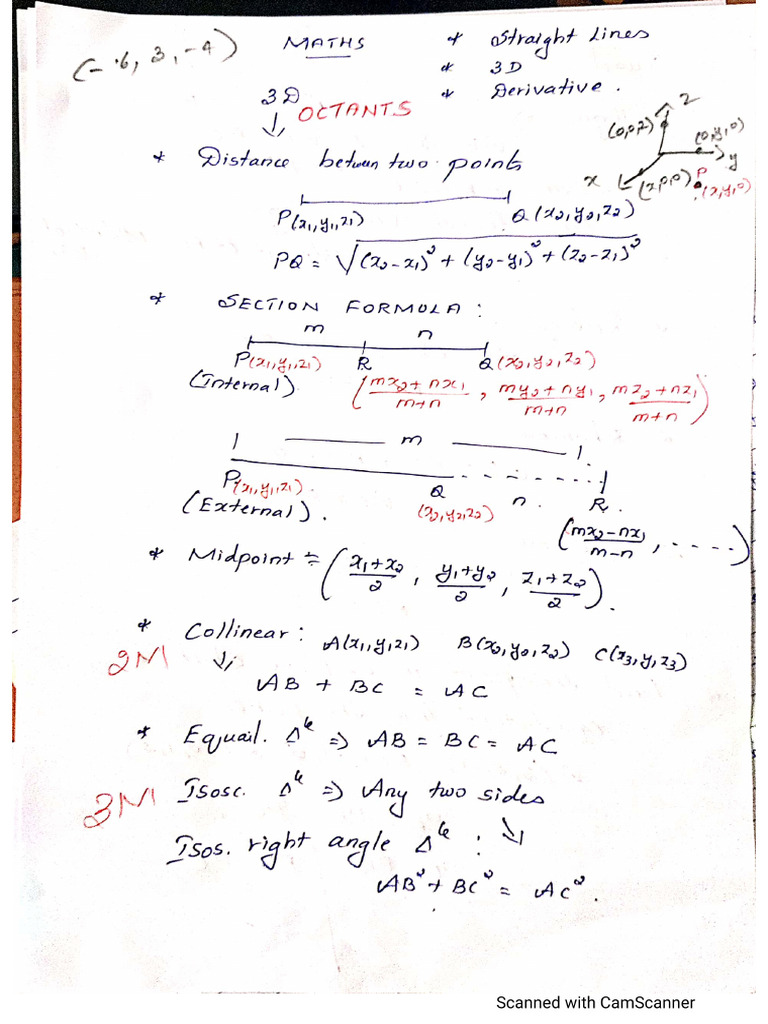 (-6, 3, -4)
MATHS
* Straight Lines
* 3D
* Derivative.
3D
OCTANTS
↓
z
(0,0,z)
(0,y,0)
y
x
(x,0,0)
P
(x,y,0)
* Distance between two points
P(x₁,y₁,z₁) Q(x₂,y₂,z₂)
PQ = √(x₂-x₁)² + (y₂-y₁)² + (z₂-z₁)²
* SECTION FORMULA :
m n
P(x₁,y₁,z₁) R Q(x₂,y₂,z₂)
(Internal) (mx₂+nx₁/m+n , my₂+ny₁/m+n , mz₂+nz₁/m+n)
m
P(x₁,y₁,z₁). Q n. R
(External). (x₂,y₂,z₂)
(mx₂-nx₁/m-n , ....)
* Midpoint = (x₁+x₂/2 , y₁+y₂/2 , z₁+z₂/2).
* Collinear : A(x₁,y,z₁) B(x₂,y₂,z₂) C(x₃,y,z₃)
2M ↓
AB + BC = AC
* Equail. Δle ⇒ AB = BC = AC
3M Isosc. Δle ⇒ Any two sides
Isos. right angle Δle : ↓
AB² + BC² = AC².
Scanned with CamScanner